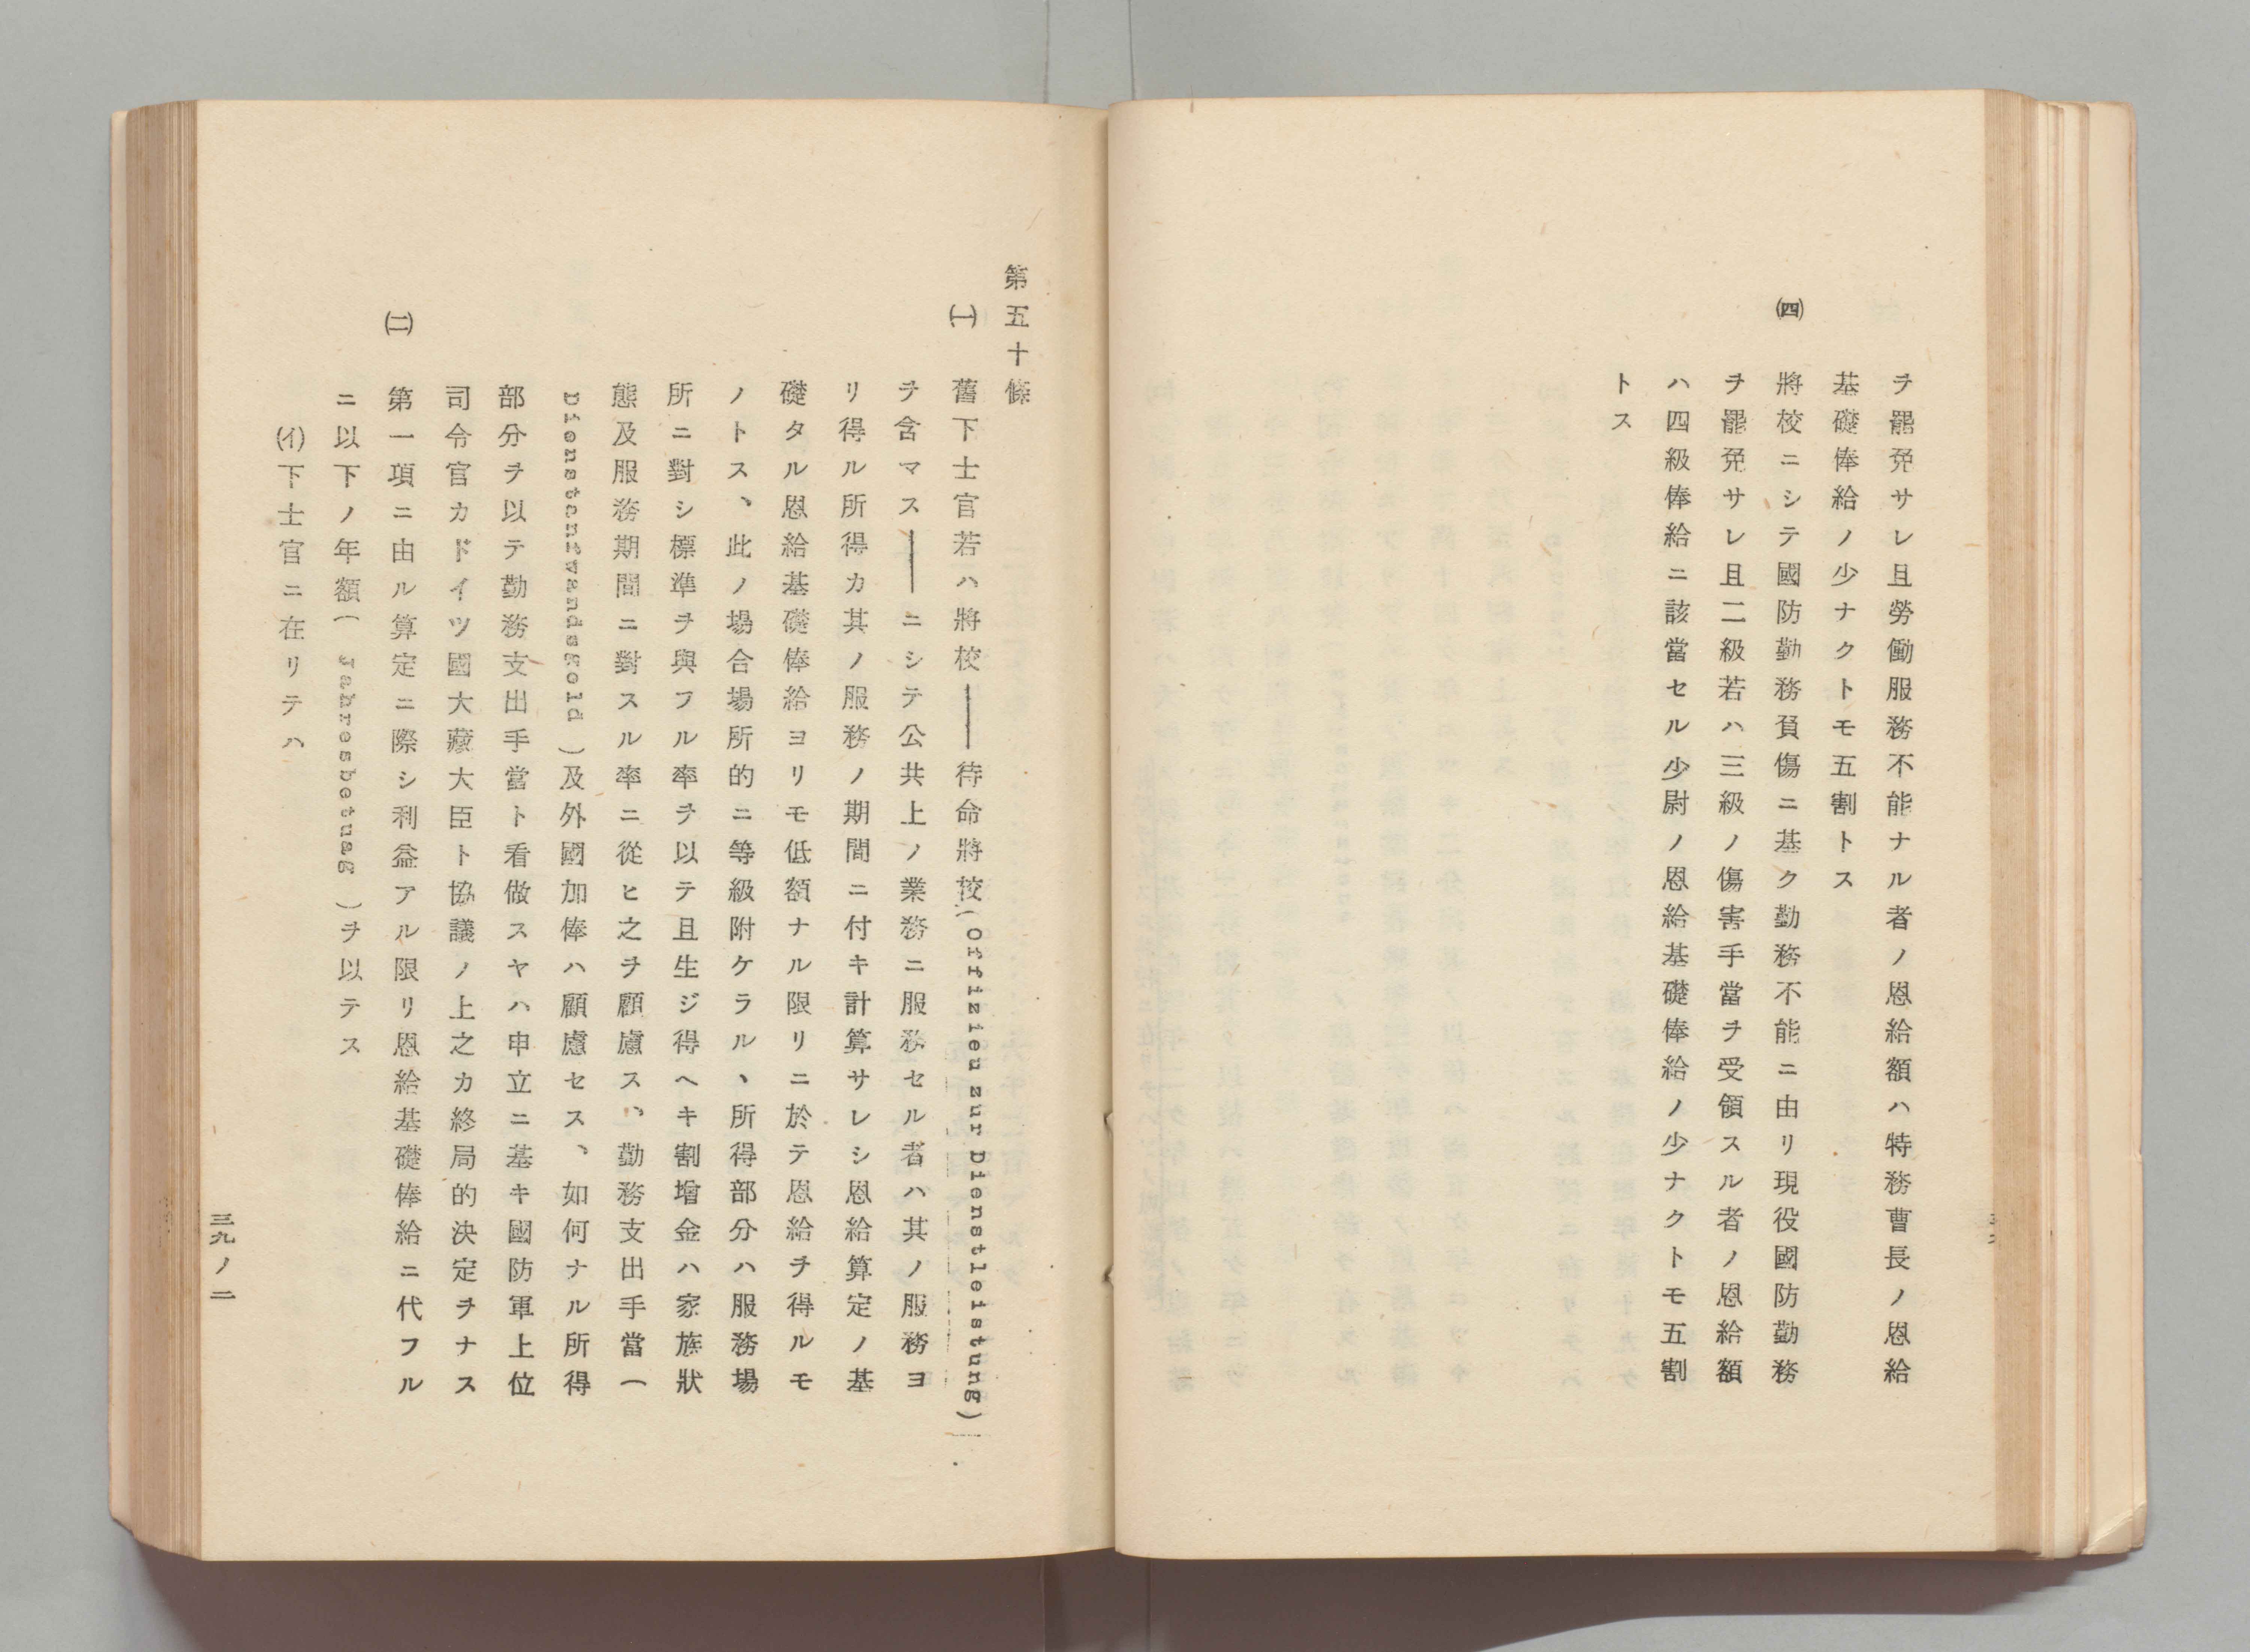 ヲ罷免サレ且勞働服務不能ナル者ノ恩給額ハ特務曹長ノ恩給
基礎俸給ノ少ナクトモ五割トス
㈣ 將校ニシテ國防勤務負傷ニ基ク勤務不能ニ由リ現役國防勤務
ヲ罷免サレ且二級若ハ三級ノ傷害手當ヲ受領スル者ノ恩給額
ハ四級俸給ニ該當セル少尉ノ恩給基礎俸給ノ少ナクトモ五割
トス
第五十條
㈠ 舊下士官若ハ將校――待命將校(Offizieu zur Dienstleistung)
ヲ含マス――ニシテ公共上ノ業務ニ服務セル者ハ其ノ服務ヨ
リ得ル所得カ其ノ服務ノ期間ニ付キ計算サレシ恩給算定ノ基
礎タル恩給基礎俸給ヨリモ低額ナル限リニ於テ恩給ヲ得ルモ
ノトス、此ノ場合場所的ニ等級附ケラル、所得部分ハ服務場
所ニ對シ標準ヲ與フル率ヲ以テ且生ジ得ヘキ割增金ハ家族狀
態及服務期間ニ對スル率ニ從ヒ之ヲ顧慮ス、勤務支出手當(
Dienstanfwandsgold)及外國加俸ハ顧慮セス、如何ナル所得
部分ヲ以テ勤務支出手當ト看做スヤハ申立ニ基キ國防軍上位
司令官カドイツ國大藏大臣ト協議ノ上之カ終局的決定ヲナス
㈡ 第一項ニ由ル算定ニ際シ利益アル限リ恩給基礎俸給ニ代フル
ニ以下ノ年額(Jahresbetuag)ヲ以テス
(イ)下士官ニ在リテハ
三九ノ二